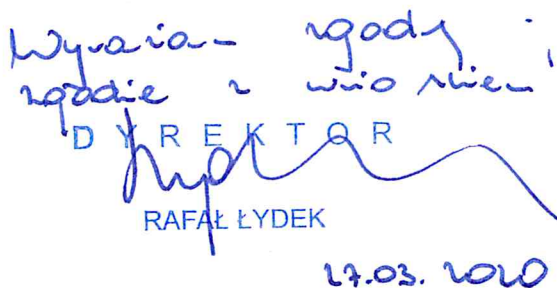 Wyrażam zgodę
zgodnie z wnioskiem
DYREKTOR
RAFAŁ ŁYDEK
27.03.2020